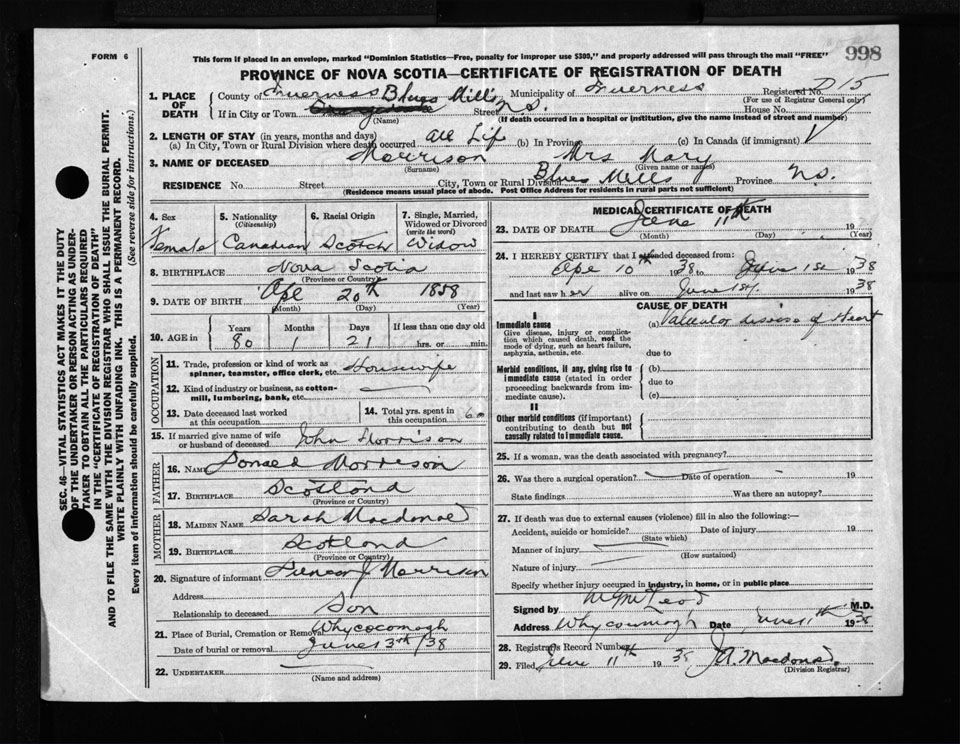 FORM 6
This form if placed in an envelope, marked "Dominion Statistics—Free, penalty for improper use $300," and properly addressed will pass through the mail "FREE"
998
PROVINCE OF NOVA SCOTIA—CERTIFICATE OF REGISTRATION OF DEATH
1. PLACE OF DEATH
County of Inverness Municipality of Inverness Registered No. D15
(For use of Registrar General only)
If in City or Town Blues Mills Street N.S. House No.
(Name) (If death occurred in a hospital or institution, give the name instead of street and number)
2. LENGTH OF STAY (in years, months and days)
(a) In City, Town or Rural Division where death occurred all Lif (b) In Province (c) In Canada (if immigrant)
3. NAME OF DECEASED Morrison Mrs Mary
(Surname) (Given name or names)
RESIDENCE No. Street City, Town or Rural Division Blues Mills Province N.S.
(Residence means usual place of abode. Post Office Address for residents in rural parts not sufficient)
4. Sex 5. Nationality (Citizenship) 6. Racial Origin 7. Single, Married, Widowed or Divorced (write the word)
Female Canadian Scotch Widow
8. BIRTHPLACE Nova Scotia
(Province or Country)
9. DATE OF BIRTH Ape 20th 1858
(Month) (Day) (Year)
10. AGE in Years Months Days If less than one day old
80 1 21 hrs. or min.
OCCUPATION
11. Trade, profession or kind of work as spinner, teamster, office clerk, etc. Housewife
12. Kind of industry or business, as cotton-mill, lumbering, bank, etc.
13. Date deceased last worked at this occupation
14. Total yrs. spent in this occupation 60
15. If married give name of wife or husband of deceased John Morrison
FATHER
16. NAME Donald Morrison
17. BIRTHPLACE Scotland
(Province or Country)
MOTHER
18. MAIDEN NAME Sarah Macdonald
19. BIRTHPLACE Scotland
(Province or Country)
20. Signature of informant J Morrison
Address
Relationship to deceased Son
21. Place of Burial, Cremation or Removal Whycocomagh
Date of burial or removal June 13th/38
22. UNDERTAKER
(Name and address)
MEDICAL CERTIFICATE OF DEATH
23. DATE OF DEATH June 11th 19
(Month) (Day) (Year)
24. I HEREBY CERTIFY that I attended deceased from:
Ape 10th 1938 to June 1st 1938
and last saw her alive on June 1st. 1938
CAUSE OF DEATH
I
Immediate cause
Give disease, injury or complication which caused death, not the mode of dying, such as heart failure, asphyxia, asthenia, etc.
(a) Valvular disease of Heart
due to
Morbid conditions, if any, giving rise to immediate cause (stated in order proceeding backwards from immediate cause).
(b)
due to
(c)
II
Other morbid conditions (if important) contributing to death but not causally related to immediate cause.
25. If a woman, was the death associated with pregnancy?
26. Was there a surgical operation? Date of operation 19
State findings Was there an autopsy?
27. If death was due to external causes (violence) fill in also the following:—
Accident, suicide or homicide? Date of injury 19
(State which)
Manner of injury
(How sustained)
Nature of injury
Specify whether injury occurred in industry, in home, or in public place
Signed by McLeod M.D.
Address Whycocomagh Date June 11th 1938
28. Registrar's Record Number
29. Filed June 11th 1938 Macdonald
(Division Registrar)
SEC. 46—VITAL STATISTICS ACT MAKES IT THE DUTY
OF THE UNDERTAKER OR PERSON ACTING AS UNDER-
TAKER TO OBTAIN ALL THE PARTICULARS REQUIRED
IN THE "CERTIFICATE OF REGISTRATION OF DEATH"
AND TO FILE THE SAME WITH THE DIVISION REGISTRAR WHO SHALL ISSUE THE BURIAL PERMIT.
WRITE PLAINLY WITH UNFADING INK. THIS IS A PERMANENT RECORD.
Every item of information should be carefully supplied. (See reverse side for instructions.)